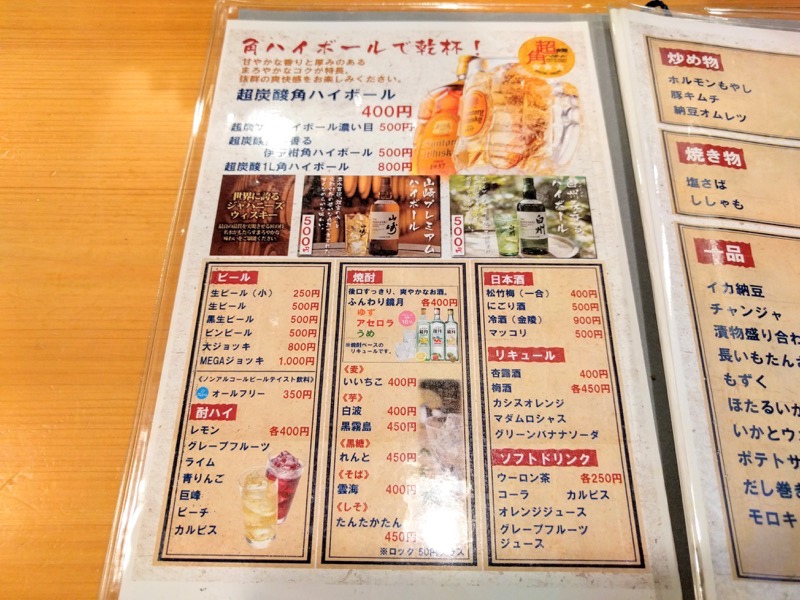 角ハイボールで乾杯！
甘やかな香りと厚みのある
まろやかなコクが特長。
抜群の爽快感をお楽しみください。
超角
超炭酸角ハイボール
400円
ハイボール濃い目 500円
超炭酸
伊予柑角ハイボール 500円
超炭酸1L角ハイボール 800円
世界に誇る
ジャパニーズ
ウィスキー
山崎プレミアム
ハイボール
500円
山崎
ハイボール
500円
白州
ビール
生ビール（小） 250円
生ビール 500円
黒生ビール 500円
ビンビール 500円
大ジョッキ 800円
MEGAジョッキ 1,000円
《ノンアルコールビールテイスト飲料》
オールフリー 350円
酎ハイ
レモン 各400円
グレープフルーツ
ライム
青りんご
巨峰
ピーチ
カルピス
焼酎
後口すっきり、爽やかなお酒。
ふんわり鏡月 各400円
ゆず
アセロラ
うめ
※焼酎ベースの
リキュールです。
《麦》
いいちこ 400円
《芋》
白波 400円
黒霧島 450円
《黒糖》
れんと 450円
《そば》
雲海 400円
《しそ》
たんたかたん
450円
※ロック 50円プラス
日本酒
松竹梅（一合） 400円
にごり酒 500円
冷酒（金陵） 900円
マッコリ 500円
リキュール
杏露酒 400円
梅酒 各450円
カシスオレンジ
マダムロシャス
グリーンバナナソーダ
ソフトドリンク
ウーロン茶 各250円
コーラ カルピス
オレンジジュース
グレープフルーツ
ジュース
炒め物
ホルモンもやし
豚キムチ
納豆オムレツ
焼き物
塩さば
ししゃも
一品
イカ納豆
チャンジャ
漬物盛り合わ
長いもたんざ
もずく
ほたるいか
いかとウ
ポテトサ
だし巻き
モロキ